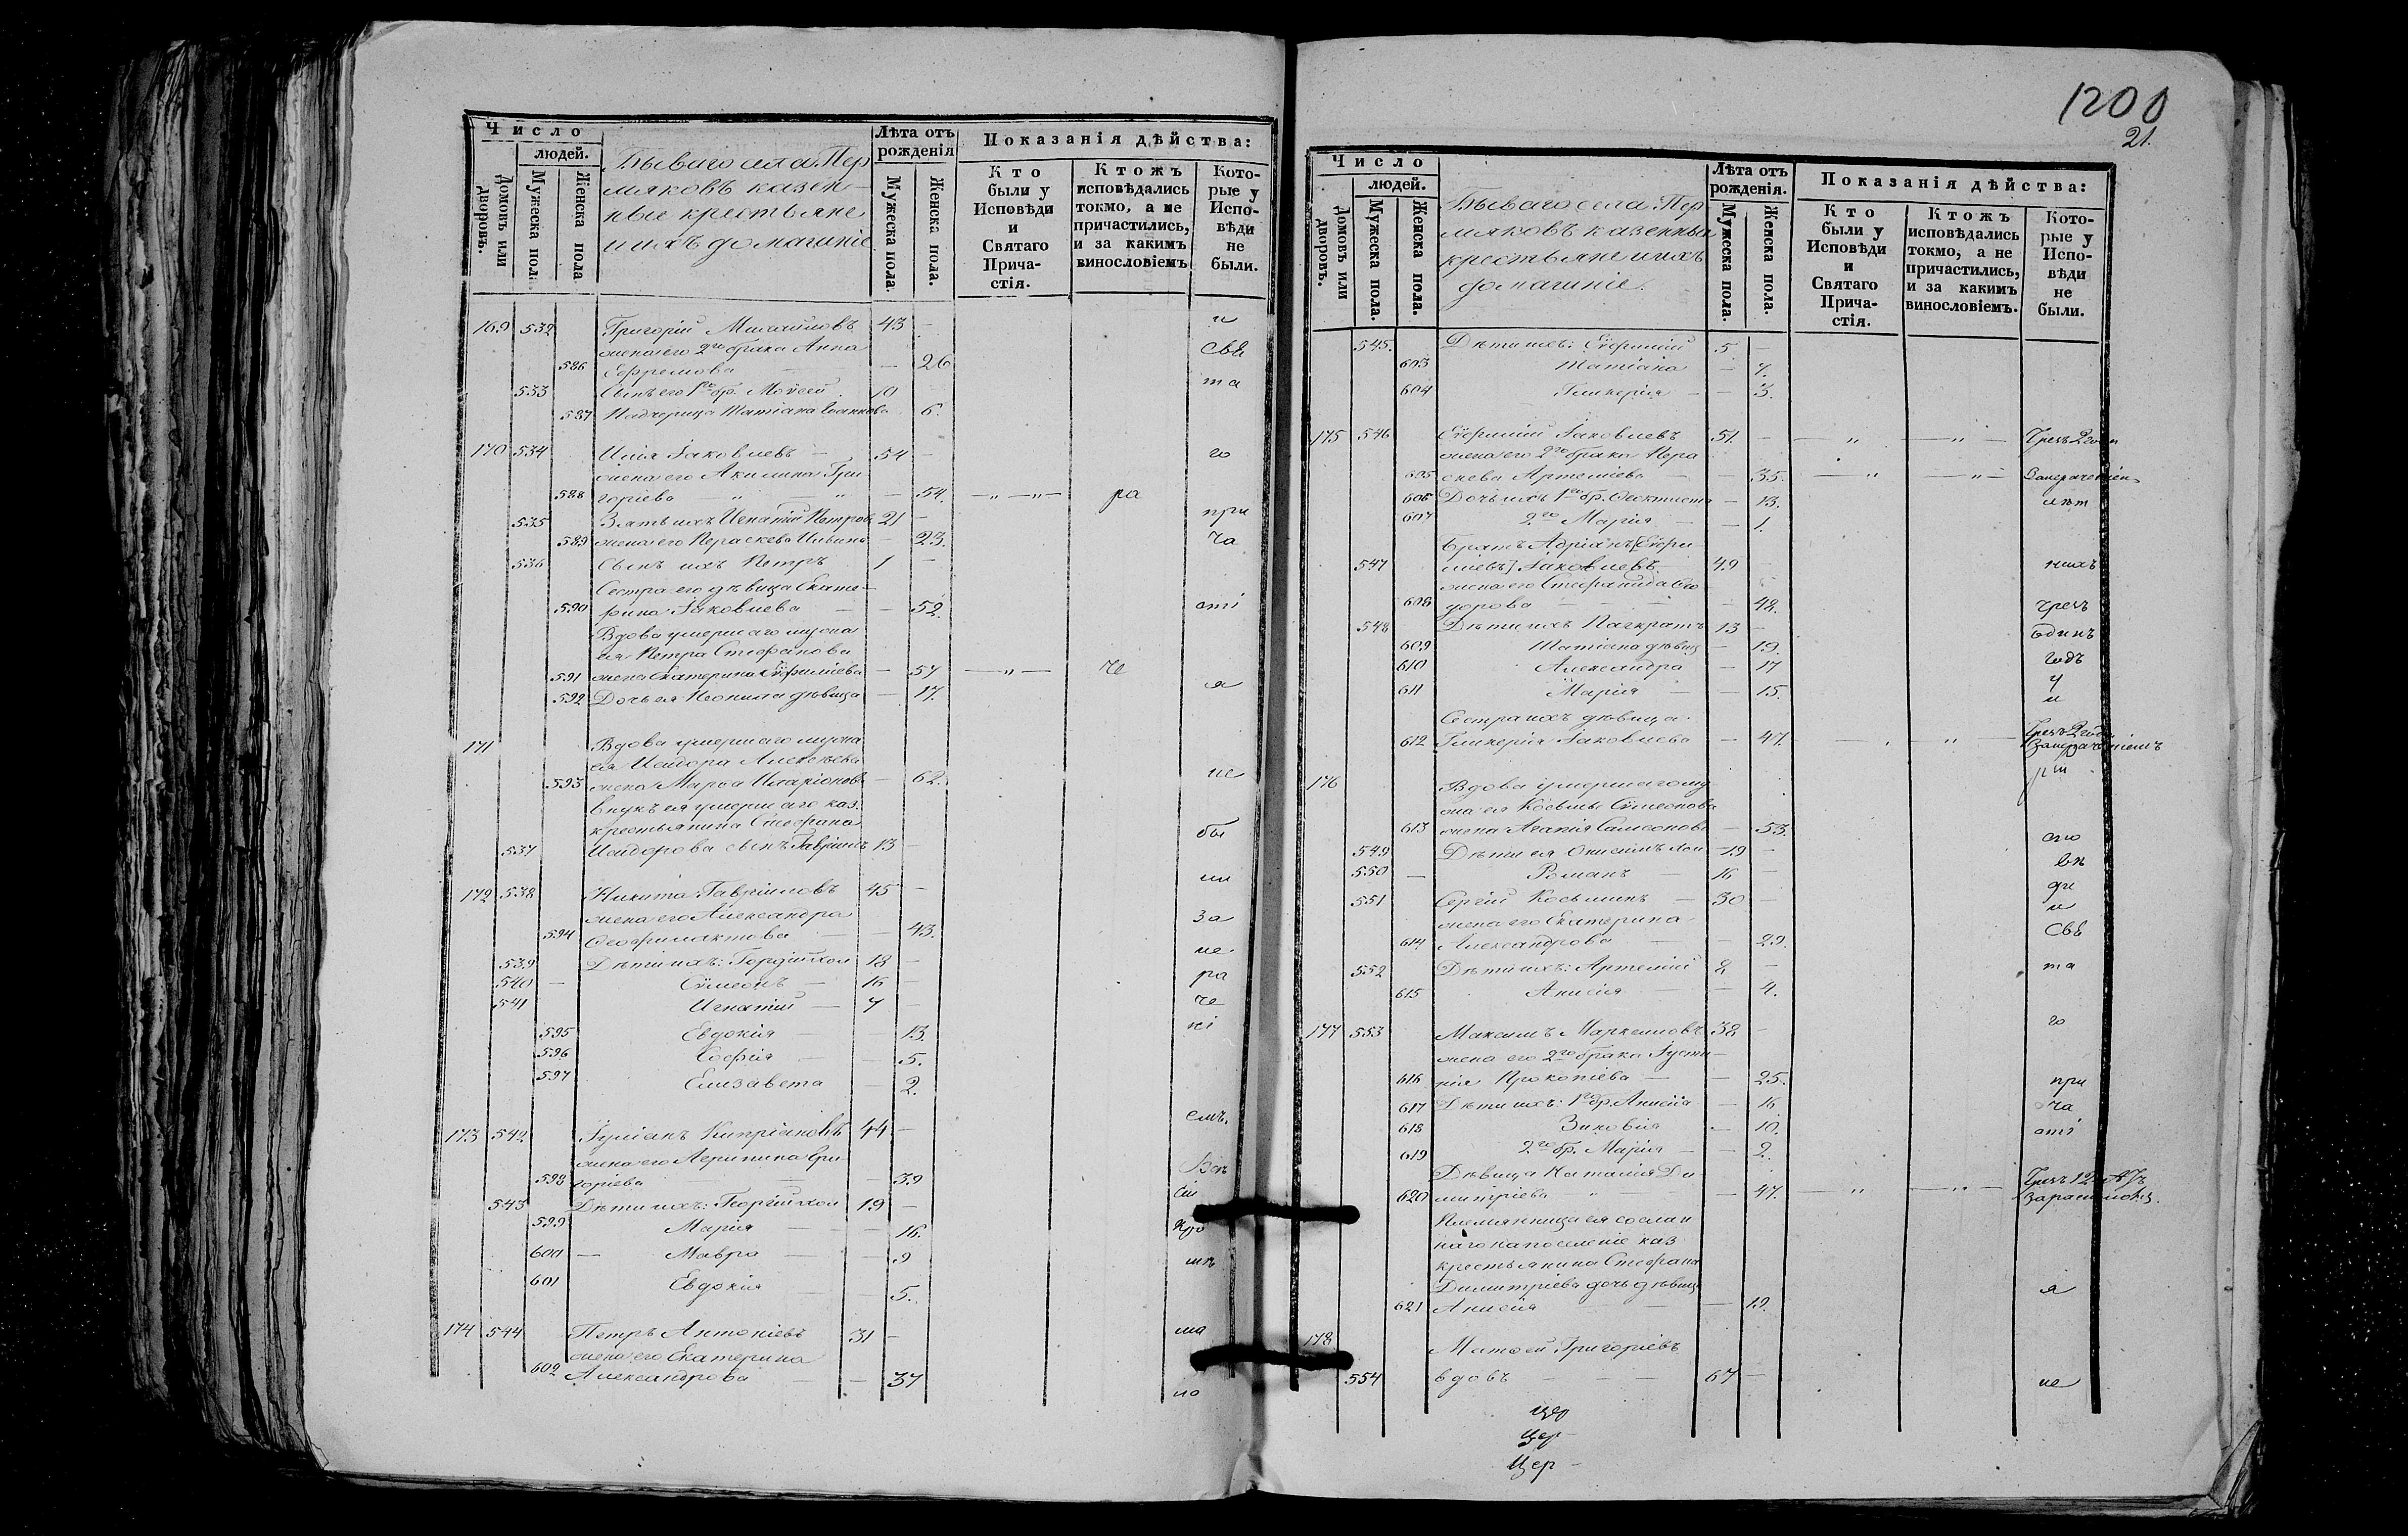 1200
21.
Число
людей.
Домовъ или дворовъ.
Мужеска пола
Женска пола
Бываго села Пер
мяковъ казен-
ные крестьяне
и ихъ домашніе
Лѣта отъ рожденія
Мужеска пола.
Женска пола.
Показанія дѣйства:
Кто были у Исповѣди и Святаго Прича-стія.
Ктожъ исповѣдались токмо, а не причастились, и за какимъ винословіемъ
Кото-рые у Испо-вѣди не были.
169 532 Григорій Михайловъ 43 - и
жена его 2го брака Анна свя
586 Ефремова - 26
533 Сынъ его 1го бр. Моѵсей 10 та
587 Падчерица Татіана Іоаннова 6.
170 534 Илія Іаковлевъ - 54 - го
жена его Акилина Гри
588 горіева - 54. ра
535 Зять ихъ Игнатій Петровъ 21 - при
589 жена его Параскева Ильина - 23. ча
536 Сынъ ихъ Петръ 1 -
Сестра его дѣвица Екате-
590 рина Іаковлева - 52. сті
Вдова умершаго мужа
ея Петра Стефанова
591 жена Екатерина Евфиміева - 57 че
592 Дочь ея Неонила дѣвица - 17. я
171 Вдова умершаго мужа
ея Исидора Алексѣева
593 жена Марѳа Иларіонова - 62. не
внукъ ея умершаго каз.
крестьянина Стефана
537 Исидорова сынъ Гавріилъ 13 - бы
172 538 Никита Гавріиловъ 45 - ли
жена его Александра за
594 Ѳеофилактова - 43.
539 Дѣти ихъ: Гордій хол 18 - не
540 - Сѵмеонъ - 16 - ра
541 Игнатій - 7 - че
595 Евдокія - 13. ні
596 Софія - 5.
597 Елизавета - 2.
173 542 Іуліанъ Кипріановъ 44 - емъ.
жена его Агрипина Гри
598 горіева - 39
543 Дѣти ихъ: Георгій хол 19 -
599 Марія - 16.
600 - Мавра - 9
601 Евдокія - 5.
174 544 Петръ Антоніевъ 31 -
жена его Екатерина
602 Александрова - 37
Число
людей.
Домовъ или дворовъ.
Мужеска пола.
Женска пола.
Бываго села Пер
мяковъ казенные
крестьяне и ихъ
домашніе.
Лѣта отъ рожденія.
Мужеска пола.
Женска пола.
Показанія дѣйства:
Кто были у Исповѣди и Святаго Прича-стія.
Ктожъ исповѣдались токмо, а не причастились, и за какимъ винословіемъ.
Кото-рые у Испо-вѣди не были.
545. Дѣти ихъ: Евфимій 5 -
603 Татіана - 7.
604 Гликерія - 3.
175 546 Евфимій Іаковлевъ 51. - " - "
жена его 2го брака Пара
605 скева Артеміева - 35. - " - "
606 Дочь ихъ 1го бр. Ѳеоктиста - 13.
607 2го Марія - 1.
Братъ Адріанъ [Евфи-
547 міевъ] Іаковлевъ 49 -
жена его Стефанида Ѳео
608 дорова - 48. чрезъ
548 Дѣти ихъ Панкратъ 13 - одинъ
609 Татіана дѣвиц - 19. годъ
610 Александра - 17
611 Марія - 15. и
Сестра ихъ дѣвица
612 Гликерія Іаковлева - 47. чрезъ 2 года
176 Вдова умершаго му
жа ея Косьмы Сѵмеонова
613 жена Агапія Самсонова - 53.
549 Дѣти ея Онисимъ хол - 19 -
550 - Романъ - 16 -
551 Сергій Косьминъ - 30 - и
жена его Екатерина свя
614 Александрова - 29.
552 Дѣти ихъ: Артемій 8 - та
615 Анисія - 4.
177 553 Максимъ Маркелловъ 38 - го
жена его 2го брака Іусти-
616 нія Прокопіева - 25. при
617 Дѣти ихъ: 1го бр. Анисія - 16 ча
618 Зиновія - 10. сті
619 2го бр. Марія - 2.
Дѣвица Наталія Ди
620 митріева - 47. - " - "
Племянница ея сослан
наго на поселеніе каз
крестьянина Стефана
Димитріева дочь дѣвица я
621 Анисія - 19.
178 Матѳей Григоріевъ
554 вдовъ - 67 - не
цер
цер-
цер-